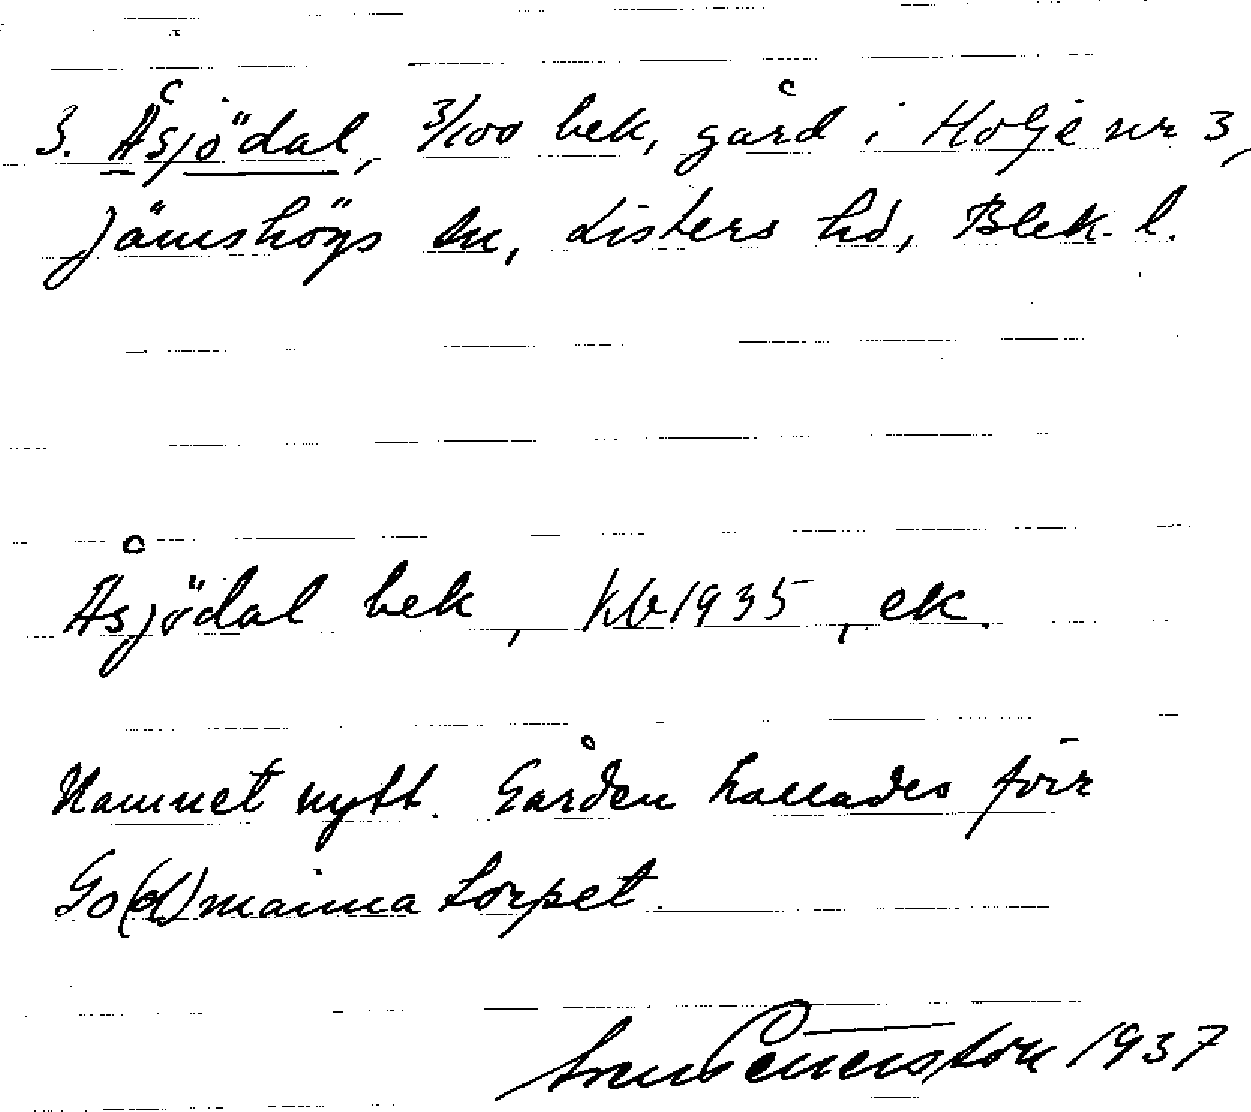 3. Åsjödal, 3/100 bek, gård i Holje nr 3,
Jämshögs sn, Listers hd, Blek. l.
Åsjödal bek, kb 1935, ek.
Namnet nytt. Gården kallades förr
Go(d)manna torpet.
1937